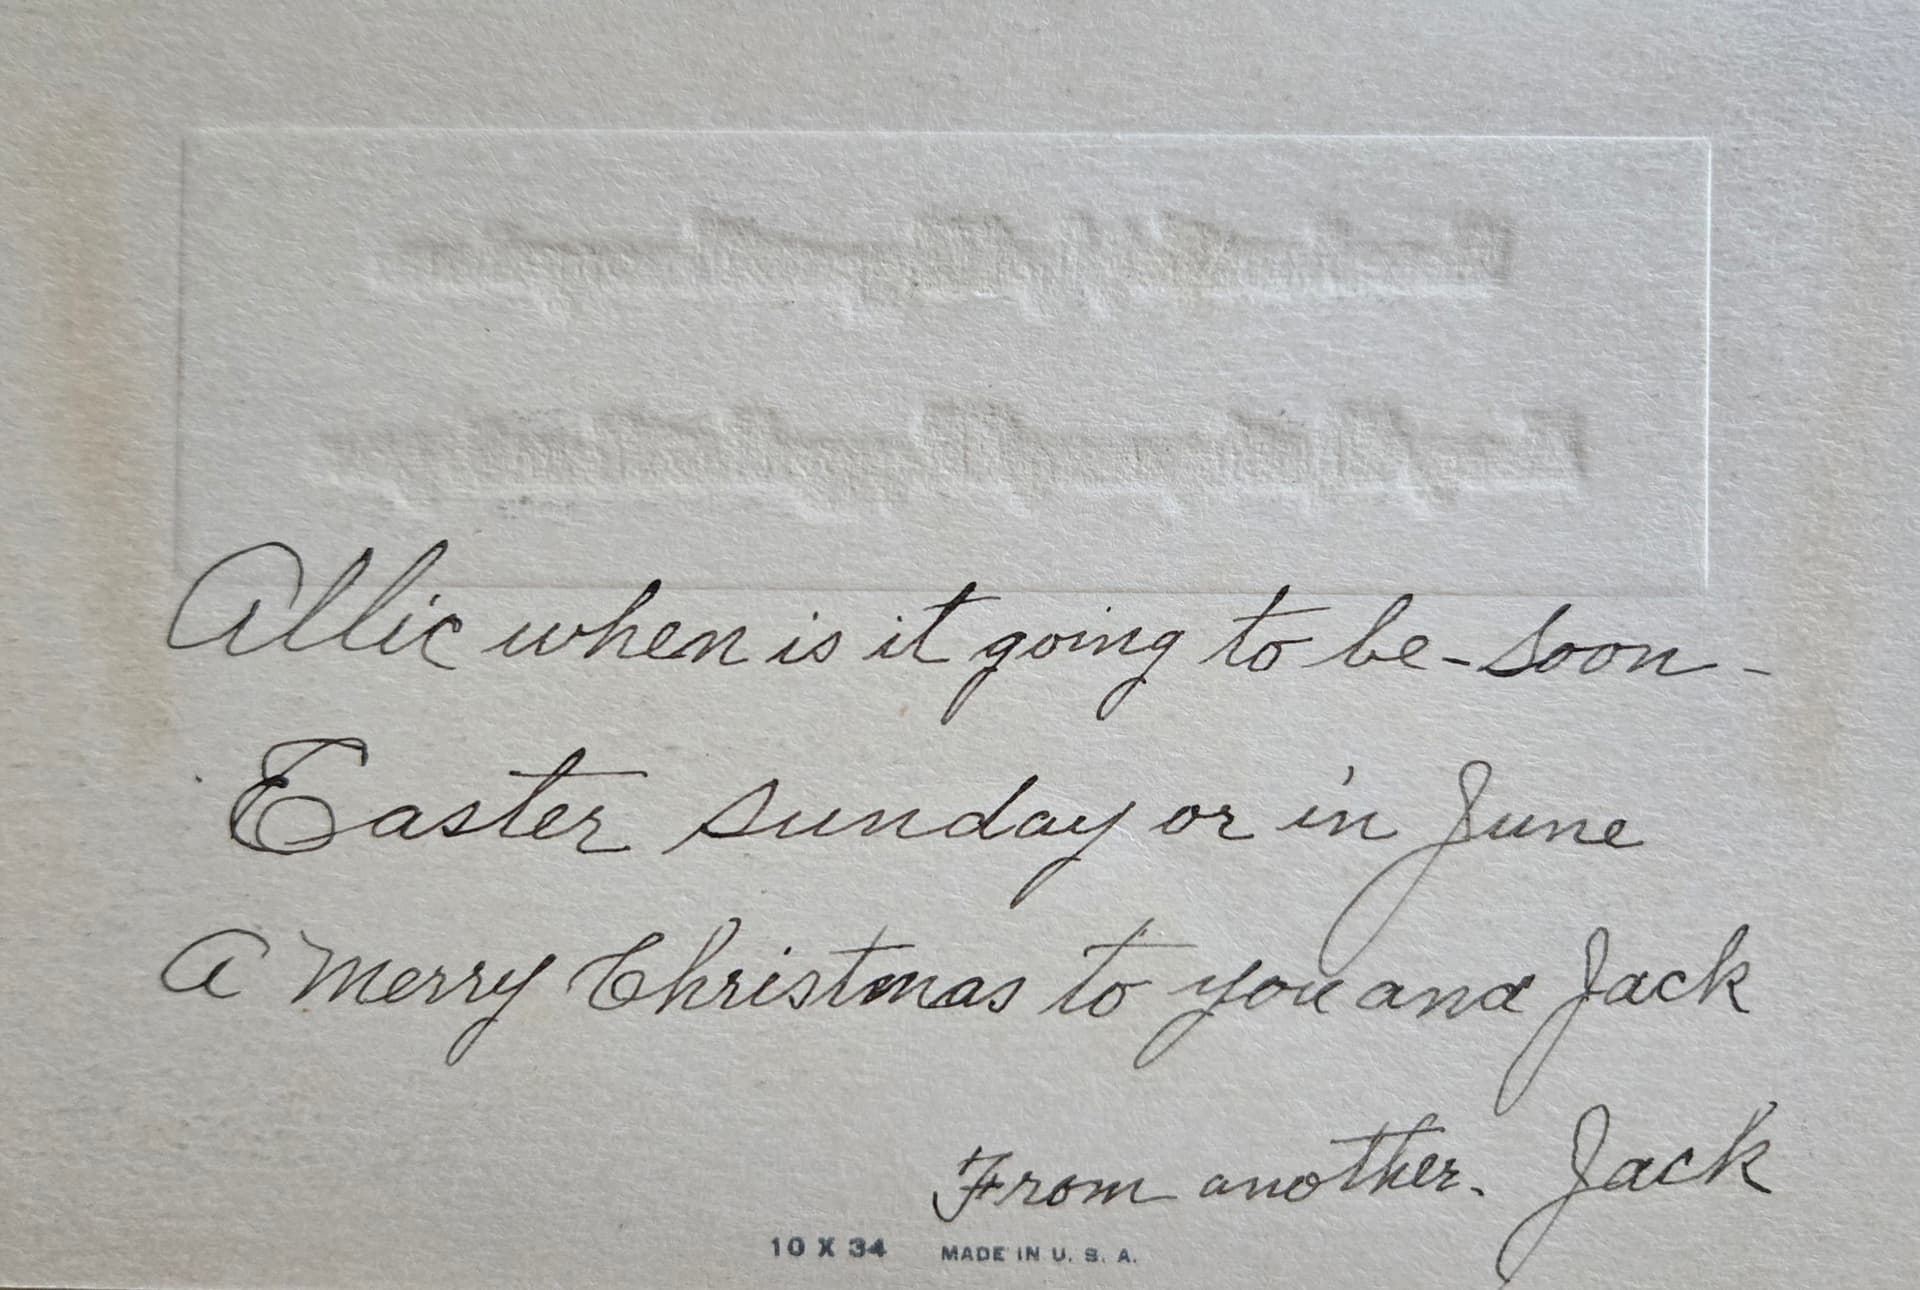 Allie when is it going to be - soon -
Easter sunday or in June
A Merry Christmas to you and Jack
From another. Jack
10 X 34 MADE IN U. S. A.